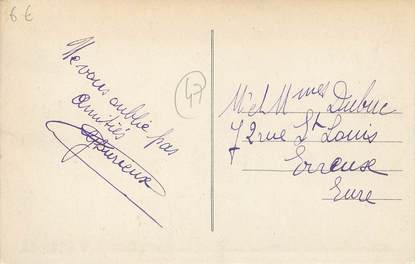 6 €
Ne vous oublie pas
amitiés
47
M et Mmes Dubuc
72 rue St Louis
Evreux
Eure